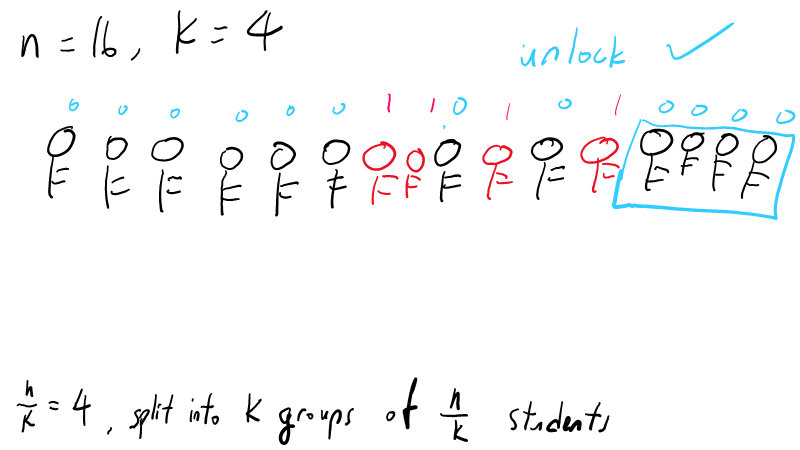 n = 16, K = 4
unlock ✓
0 0 0 0 0 0 1 1 0 1 0 1 0 0 0 0
n/K = 4, split into K groups of n/K students